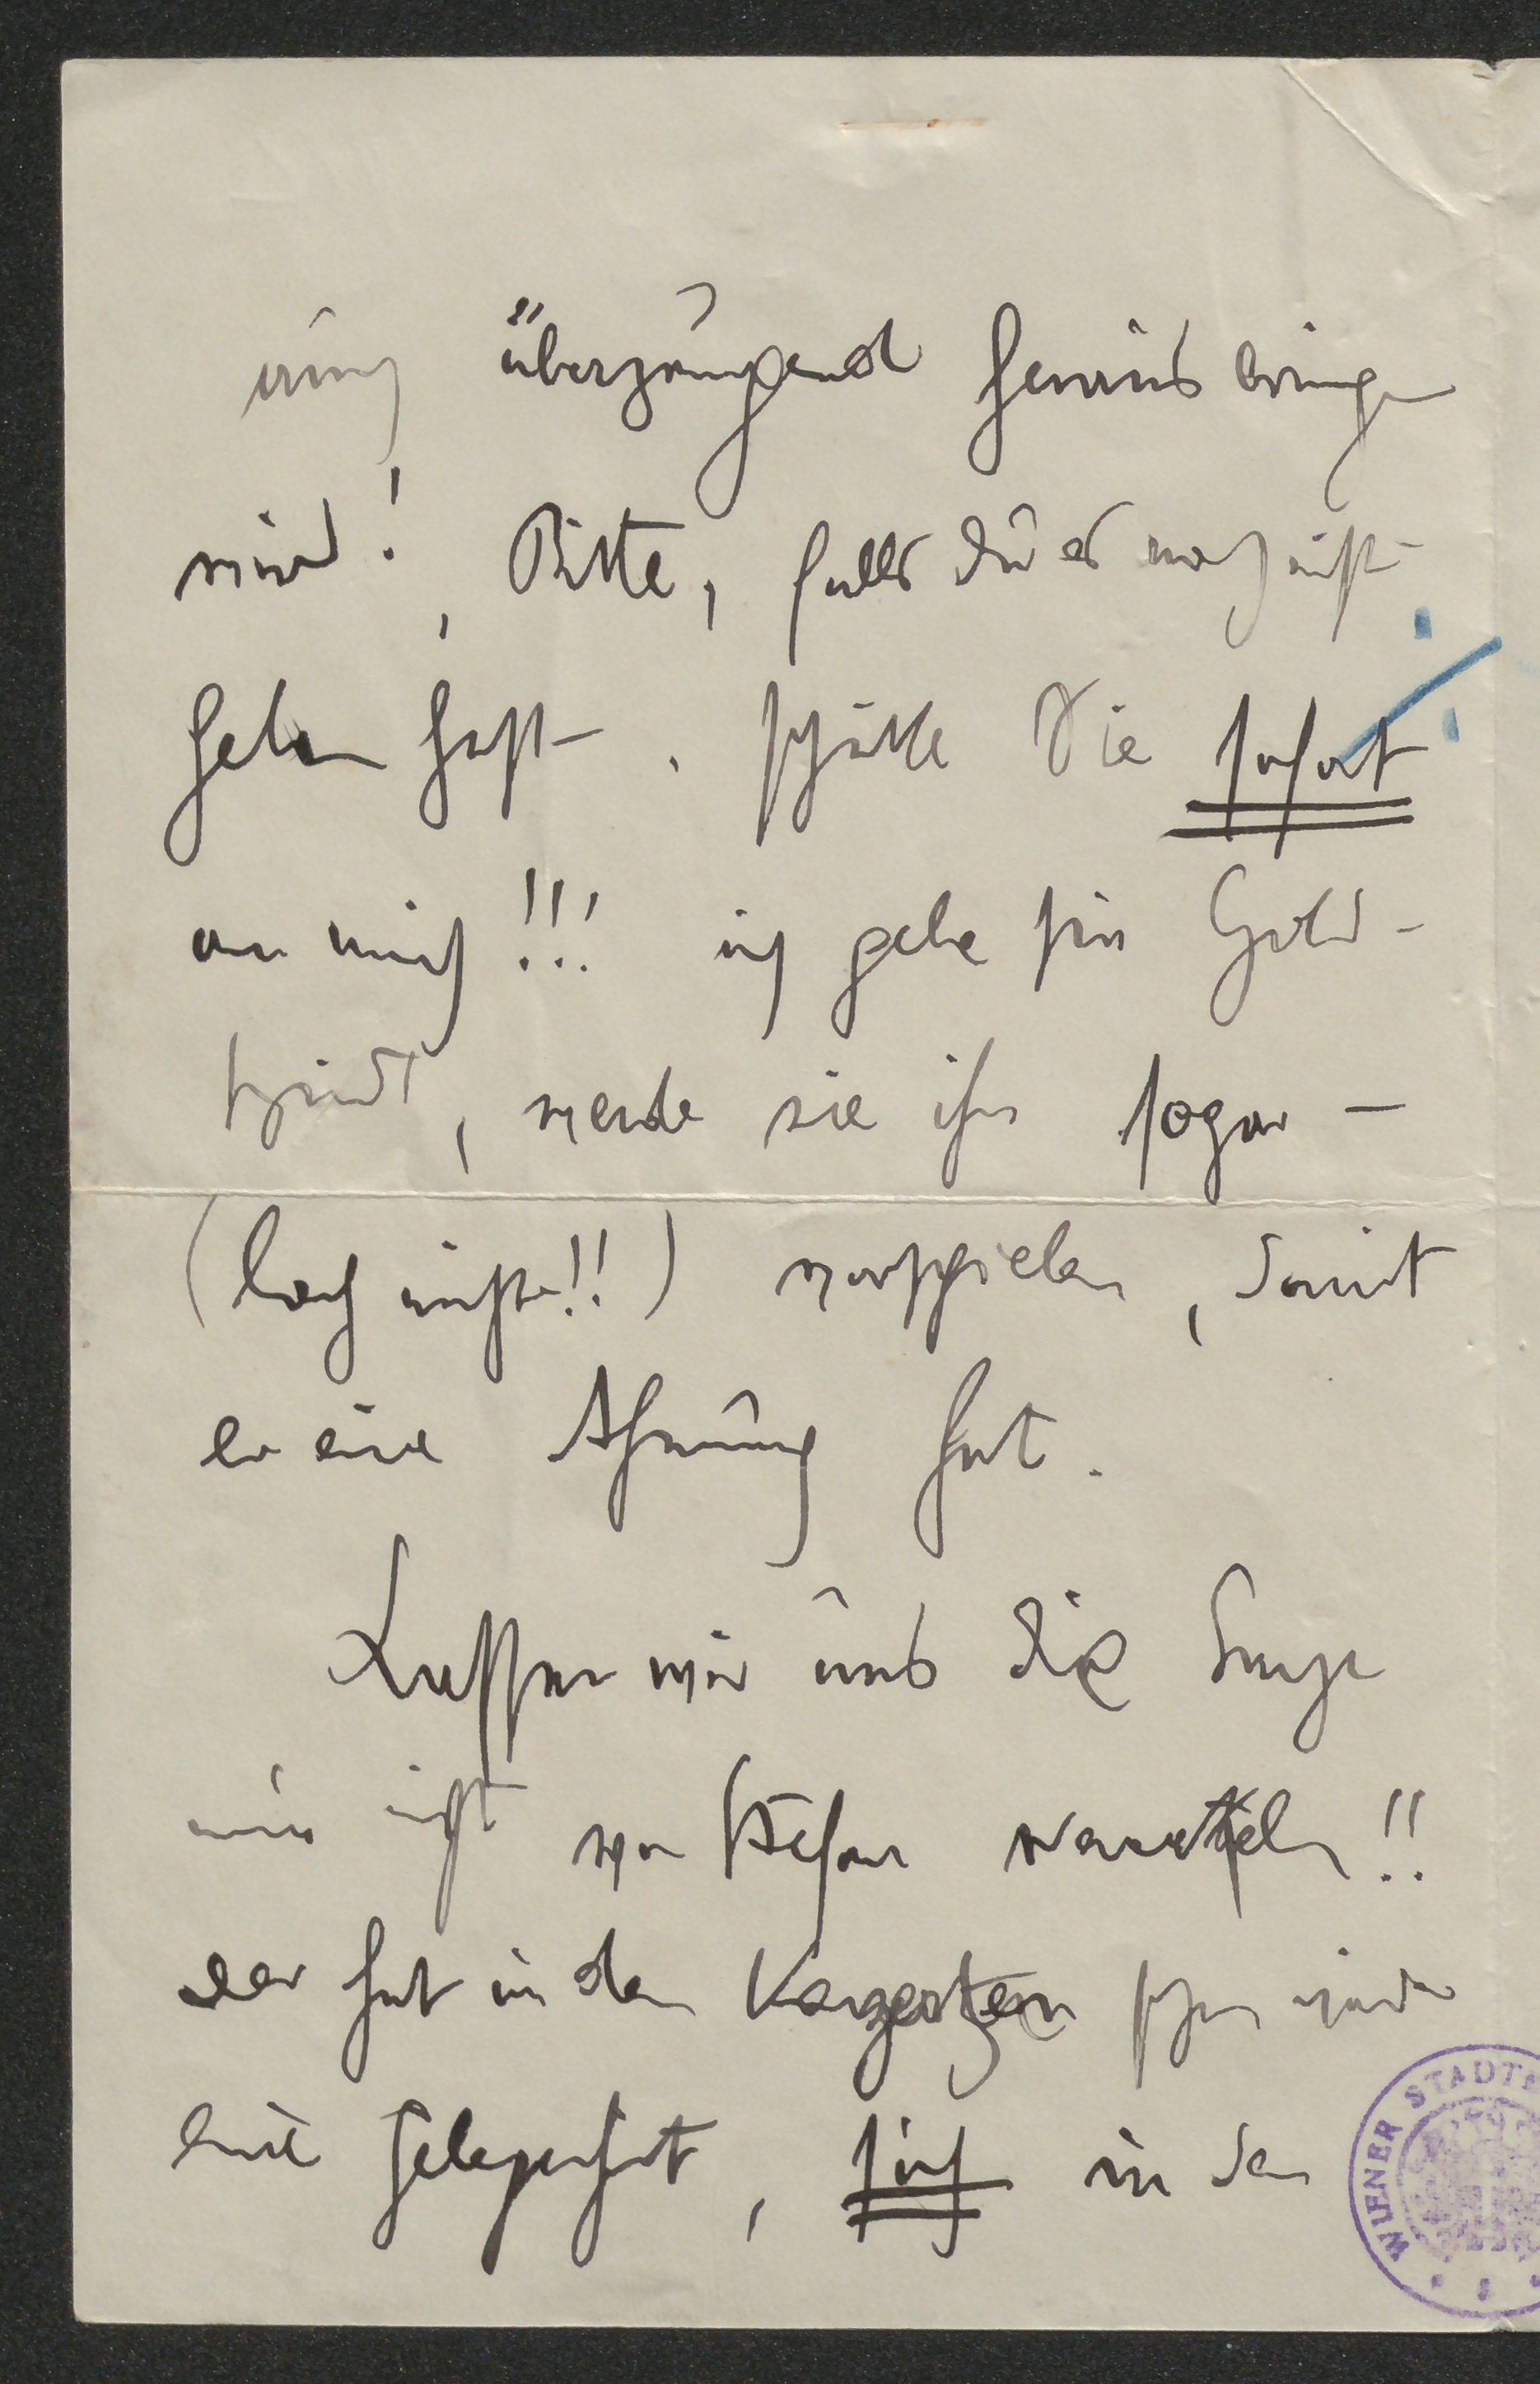 auch überzeugend herausbringen
wird! Bitte, falls Du es noch nicht
geben hast, schicke Sie sofort
an mich!!! ich gebe sie Gold-
schmidt, werde sie ihm sogar –
(lach nicht!!) vorspielen, damit
er eine Ahnung hat.
Lassen wir uns die Sache
nur nicht von Stefan verekeln!!
der hat in den Konzerten schon wieder
eine Gelegenheit, sich in den
WIENER STADT